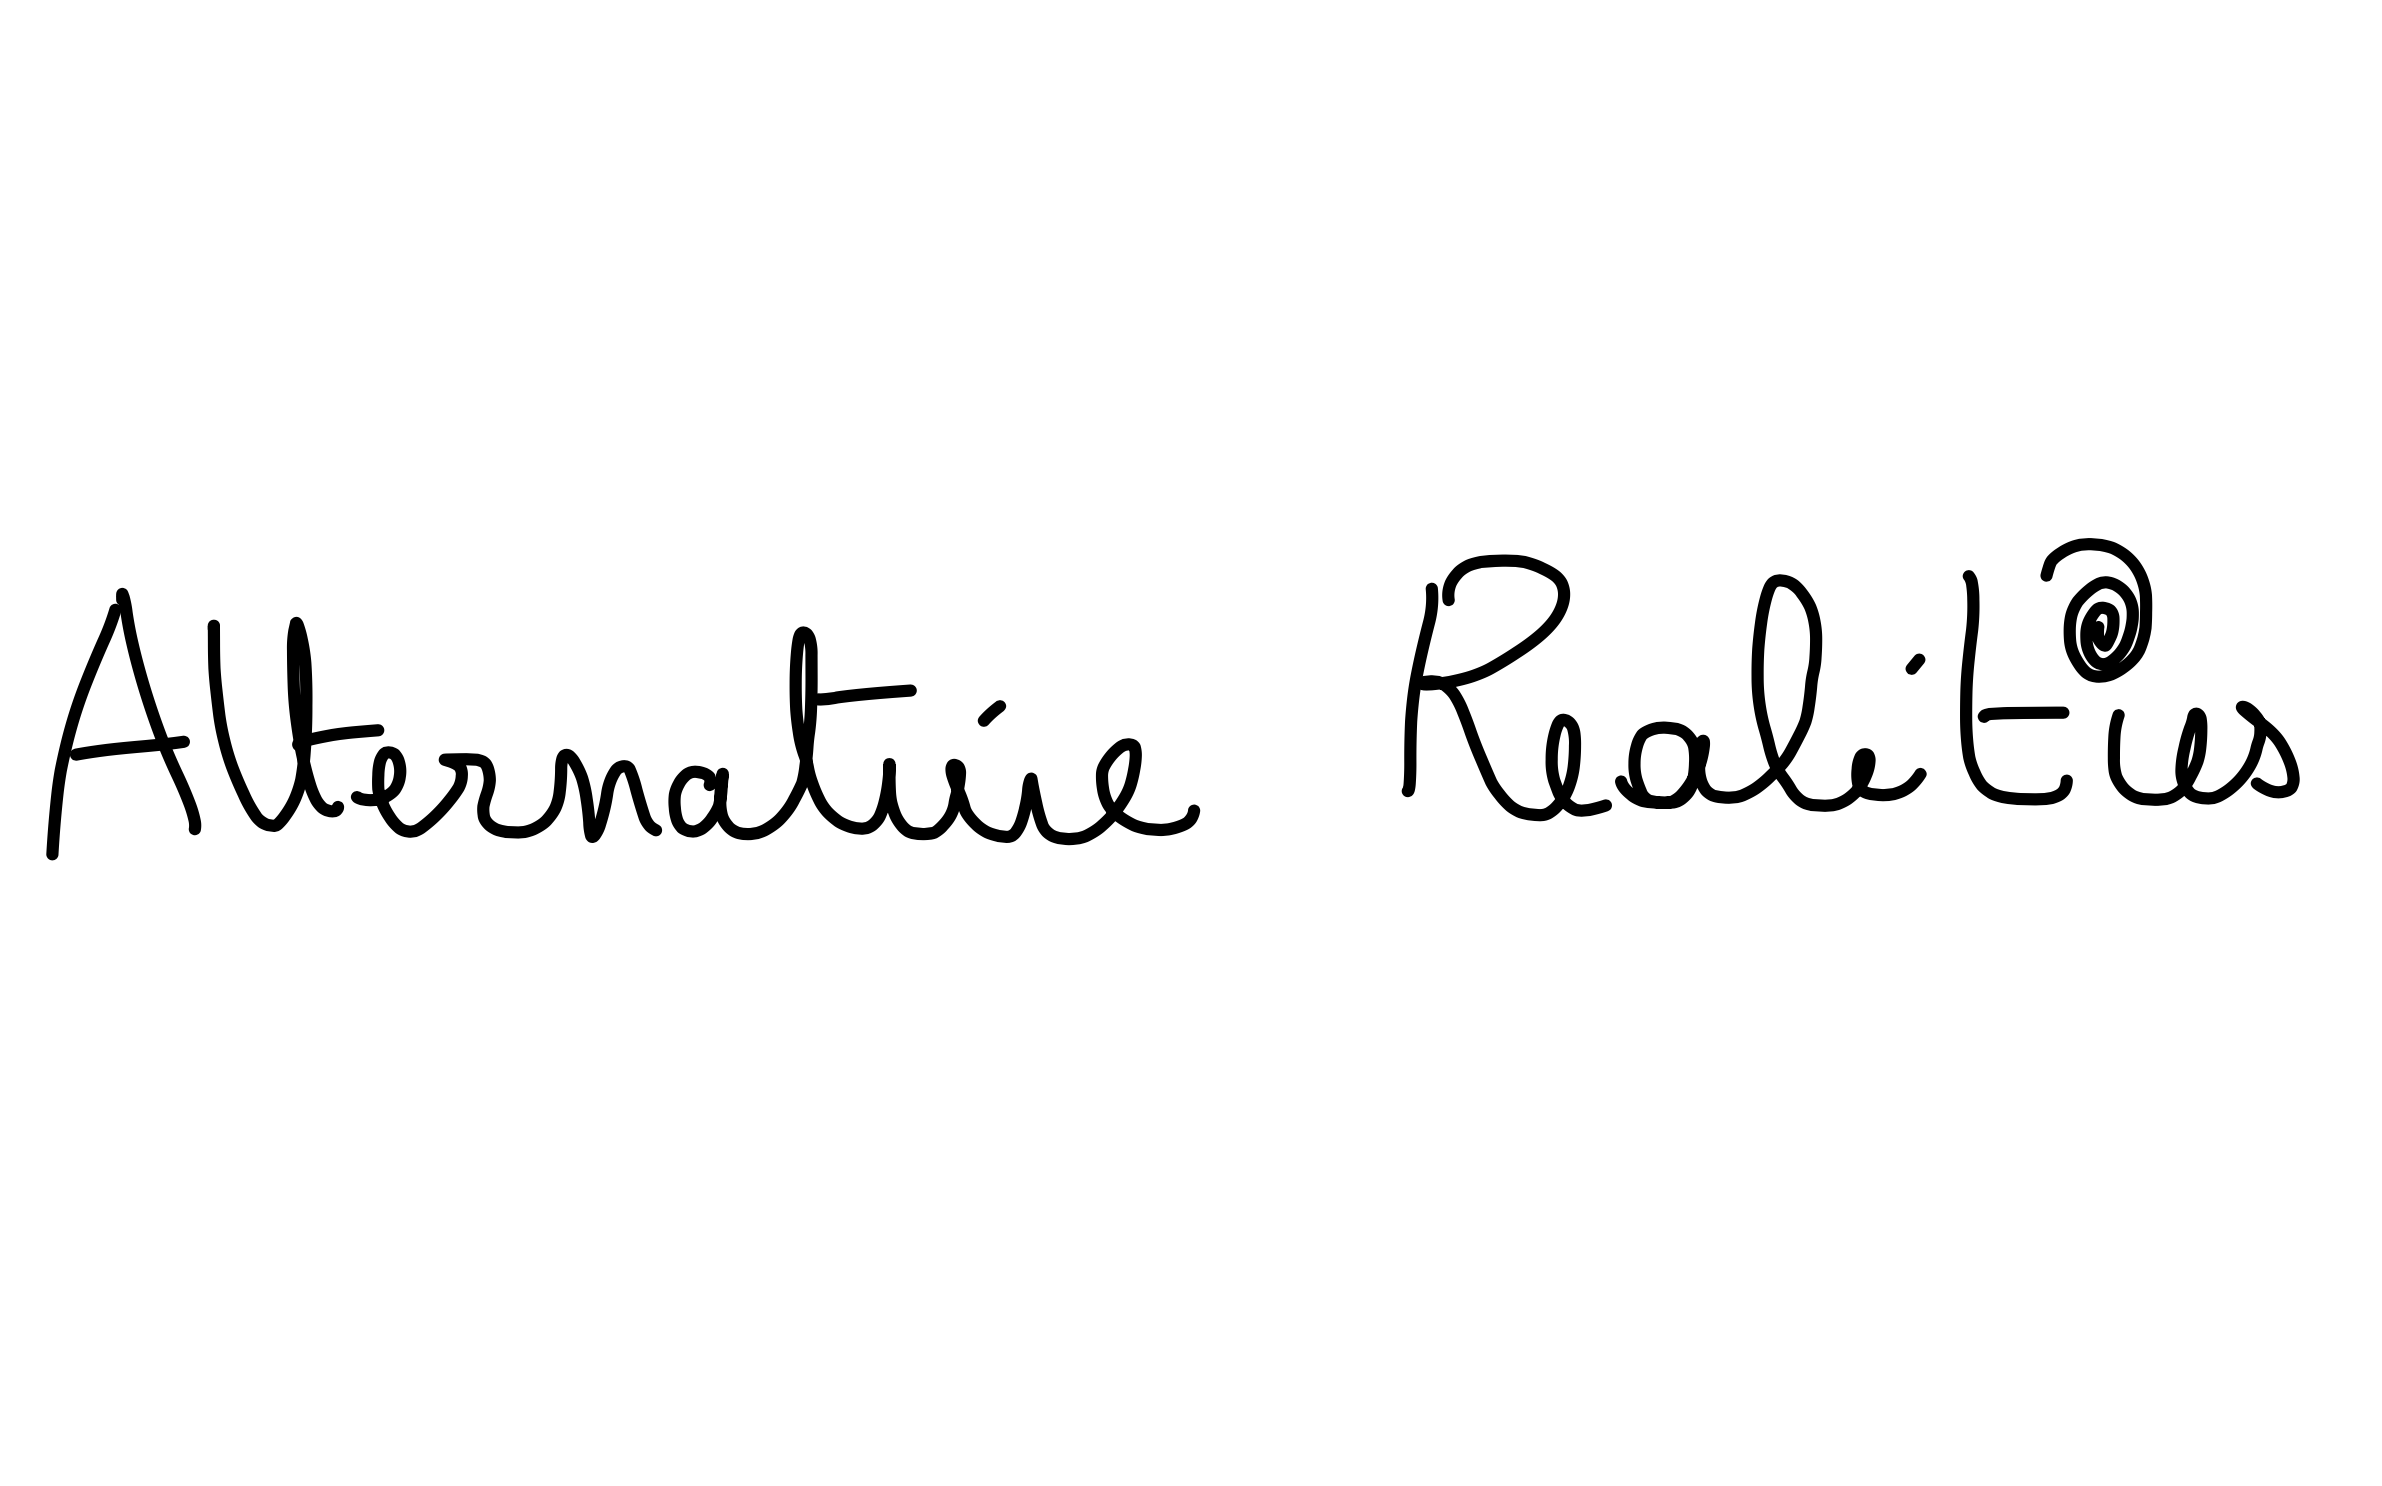 Alternative Realities